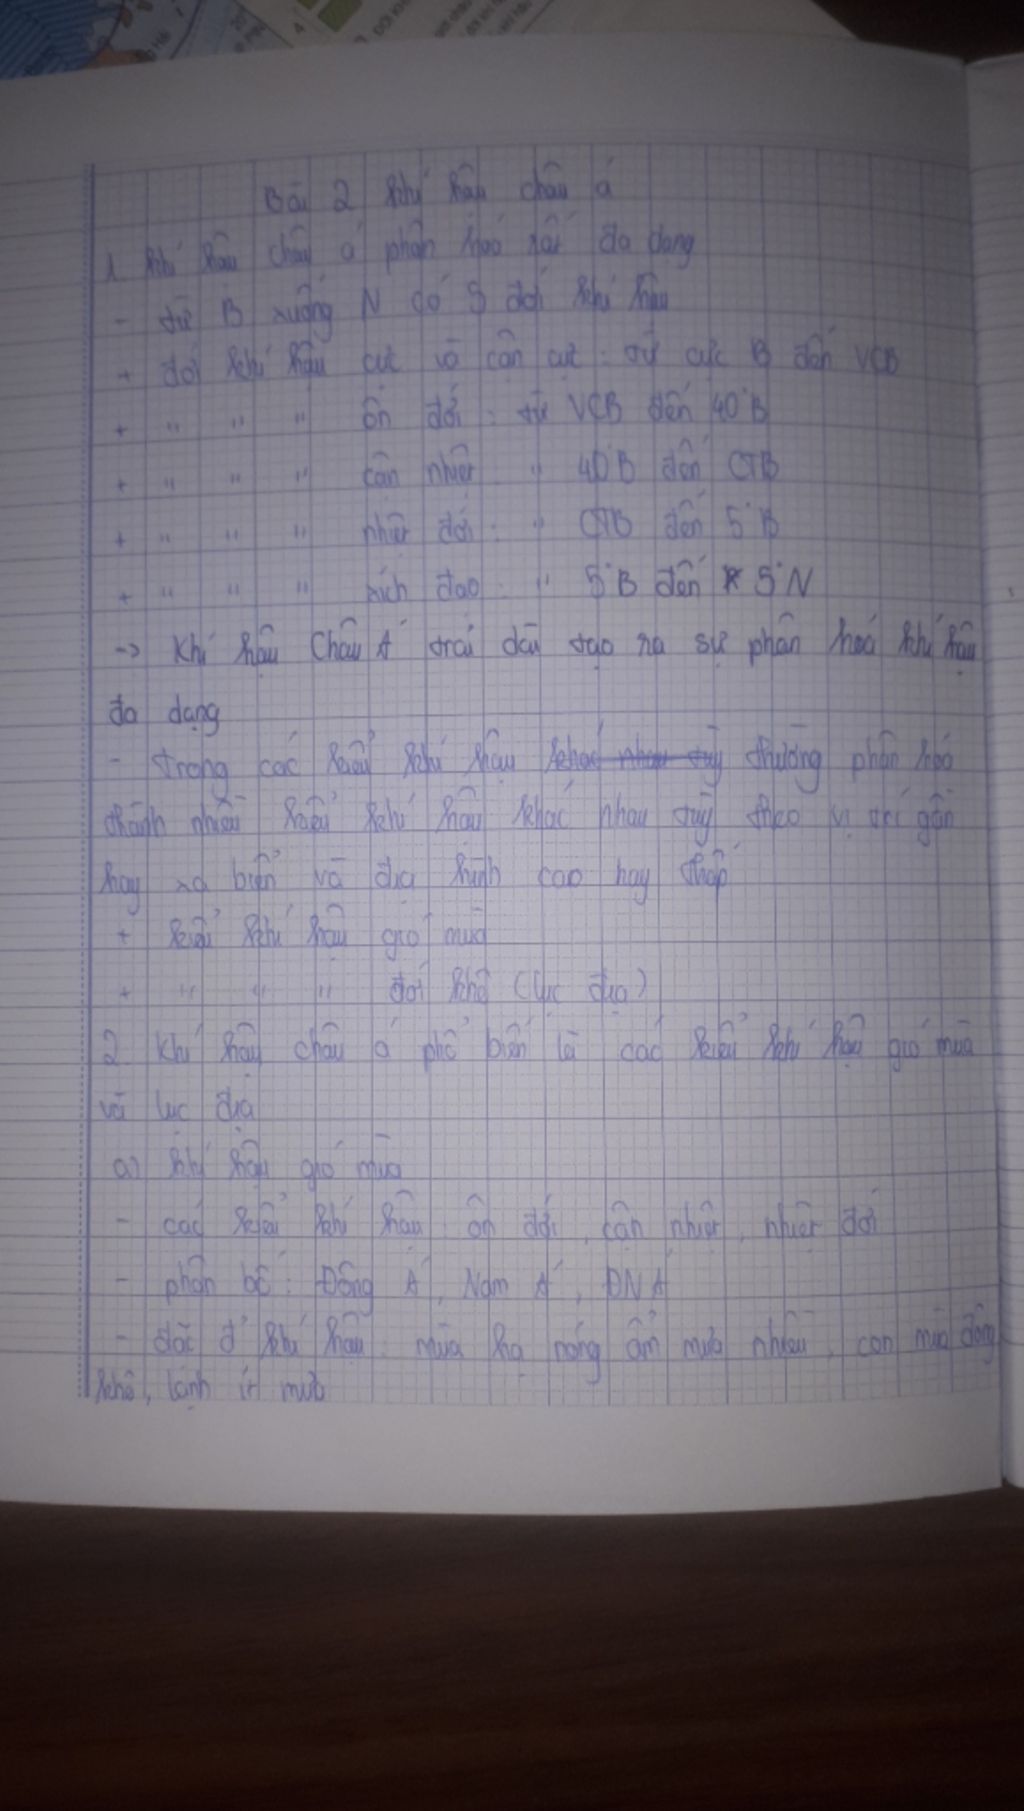 Bài 2 khí hậu châu á
1 khí hậu châu á phân hoá rất đa dạng
- từ B xuống N có 5 đới khí hậu
+ đới khí hậu cực và cận cực : từ cực B đến VCB
+ " " " ôn đới : từ VCB đến 40°B
+ " " " cận nhiệt " 40°B đến CTB
+ " " " nhiệt đới : " CTB đến 5°B
+ " " " xích đạo : " 5°B đến 5°N
-> Khí hậu Châu Á trải dài tạo ra sự phân hoá khí hậu
đa dạng
- trong các kiểu khí hậu khác nhau tùy thường phân hoá
thành nhiều kiểu khí hậu khác nhau tùy theo vị trí gần
hay xa biển và địa hình cao hay thấp
+ kiểu khí hậu gió mùa
+ " " " đới khô (lục địa)
2. Khí hậu châu á phổ biến là các kiểu khí hậu gió mùa
và lục địa
a) khí hậu gió mùa
- các kiểu khí hậu ôn đới, cận nhiệt, nhiệt đới
- phân bố : Đông Á, Nam Á, ĐNÁ
- đặc đ' khí hậu : mùa hạ nóng ẩm mưa nhiều, còn mùa đông
khô, lạnh ít mưa